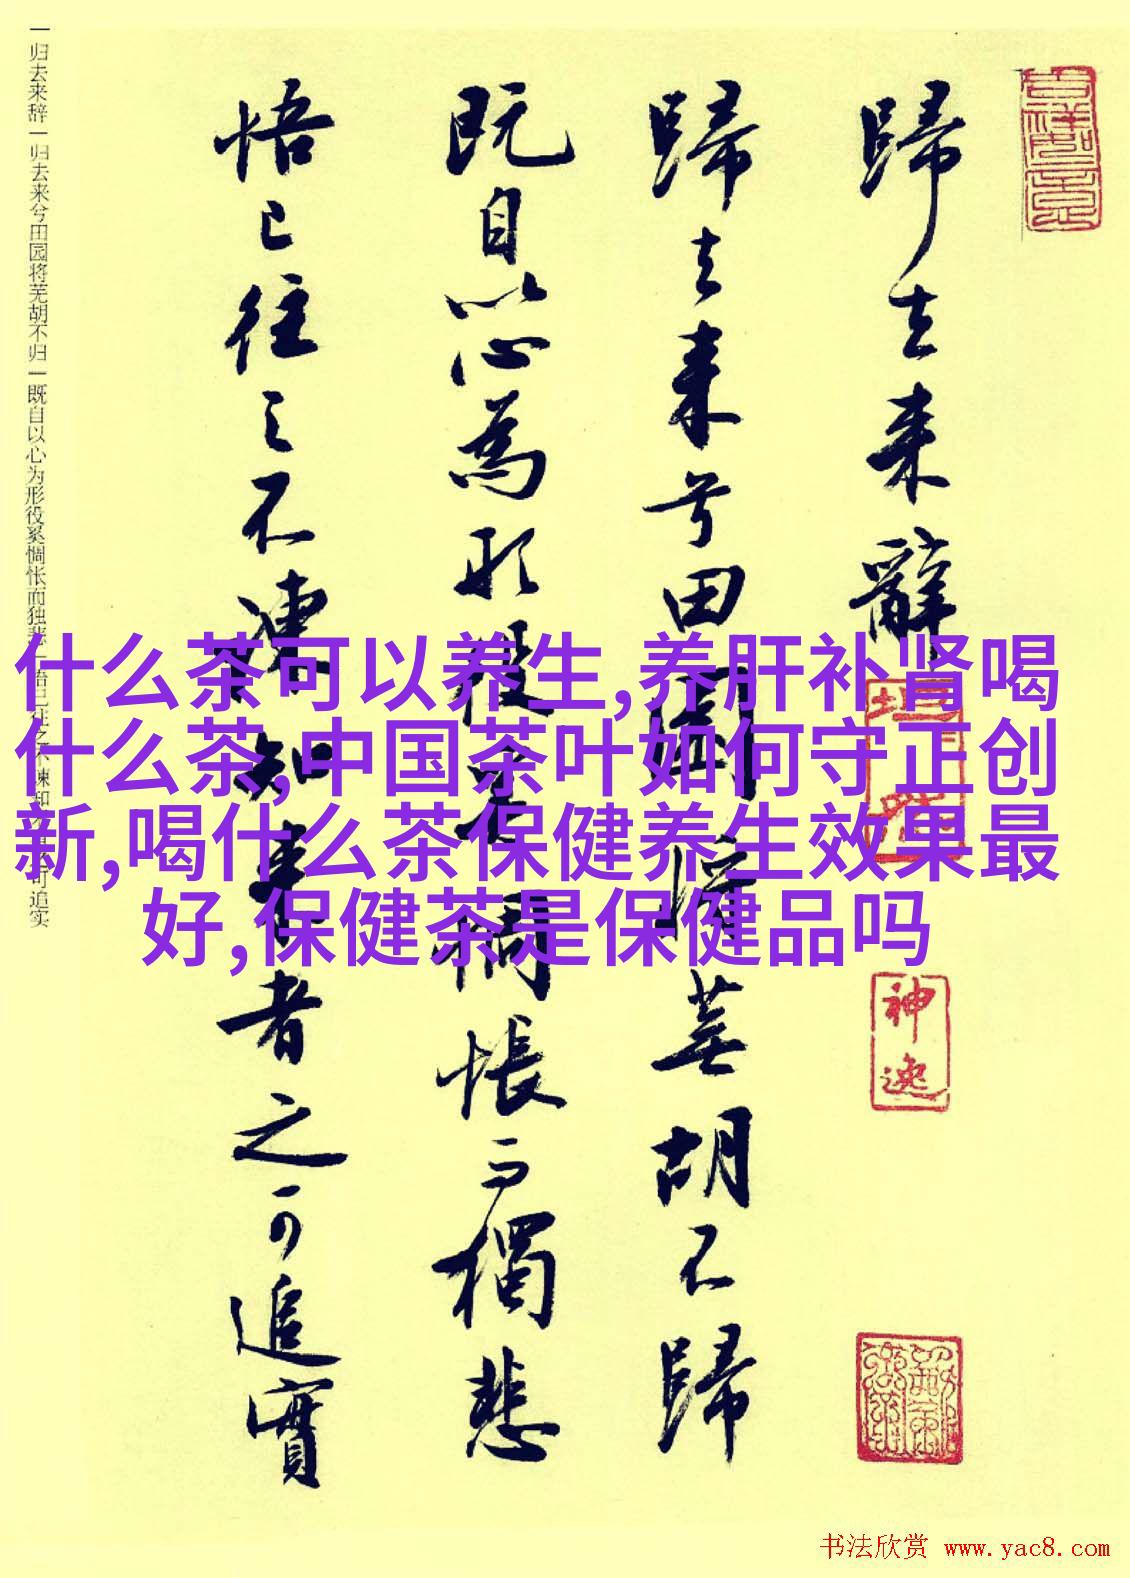 歸去来辭
神逸
歸去来兮田園将蕪胡不歸
既自以心為形役奚惆悵而獨悲
悟已往之不諫知来者之可追實
一归去来辞一归去来兮田园将芜胡不归一既自以心为形役奚惆怅而独悲一悟已往之不谏知来者之可追实
什么茶可以养生,养肝补肾喝
什么茶,中国茶叶如何守正创
新,喝什么茶保健养生效果最
好,保健茶是保健品吗
书法欣赏 www.yac8.com